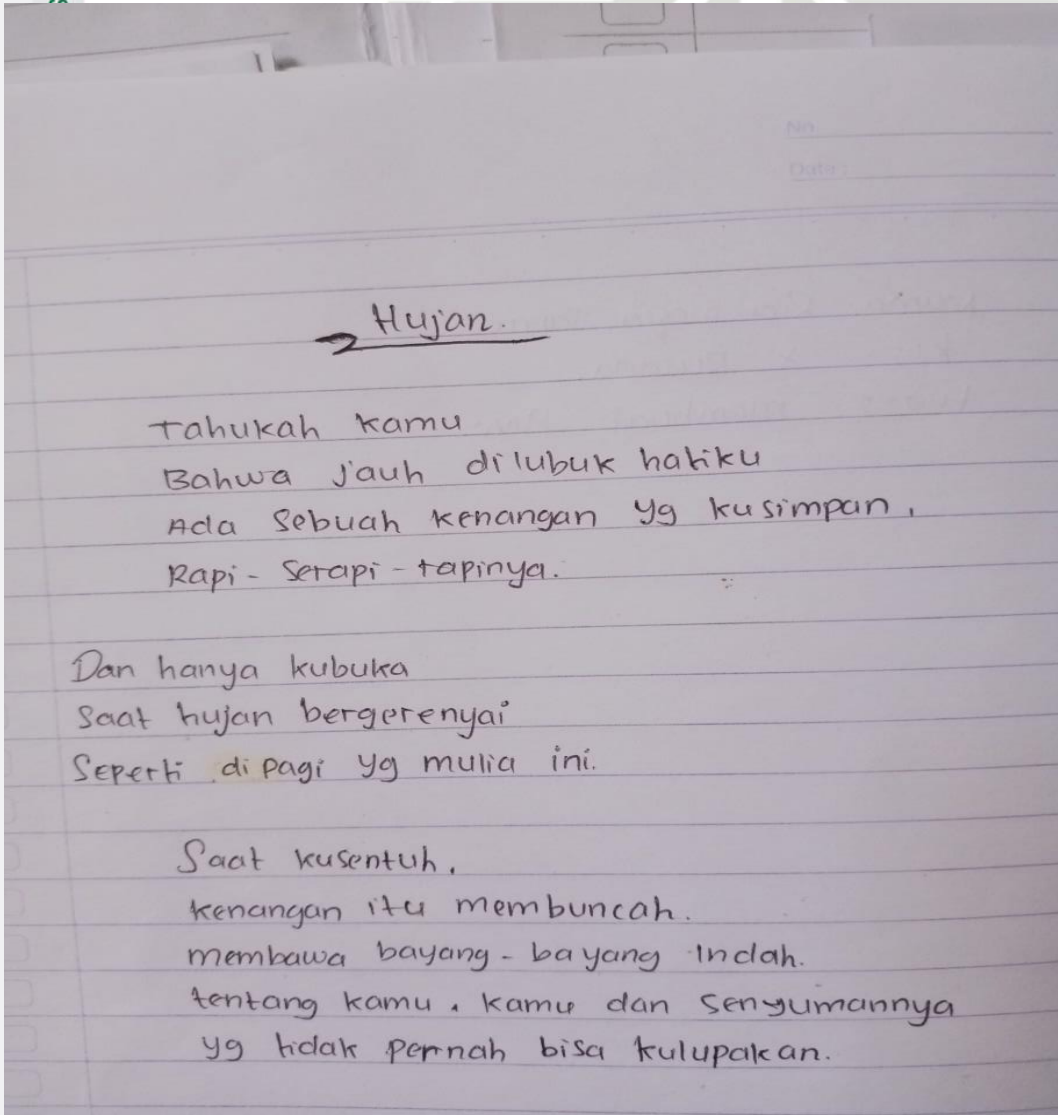 No
Date:
Hujan.
Tahukah kamu
Bahwa jauh dilubuk hatiku
Ada sebuah kenangan yg kusimpan,
Rapi - serapi - rapinya.
Dan hanya kubuka
Saat hujan bergerenyai
Seperti dipagi yg mulia ini.
Saat kusentuh,
kenangan itu membuncah.
membawa bayang - bayang indah.
tentang kamu, kamu dan senyumannya
yg tidak pernah bisa kulupakan.